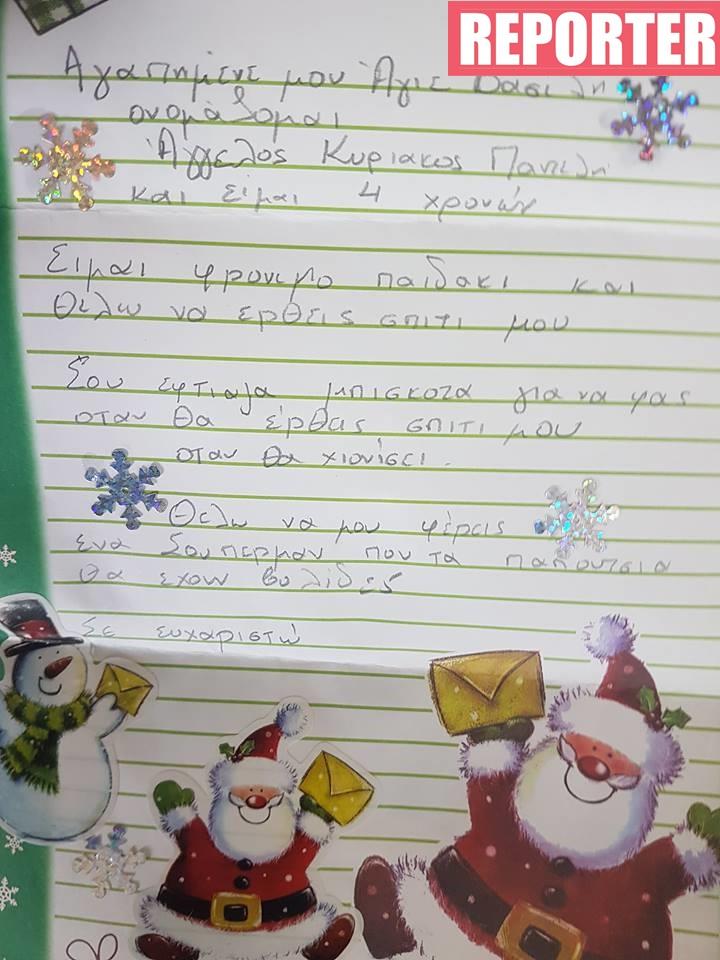 REPORTER
Αγαπημένε μου Άγιε Βασιλη
ονομάζομαι
Άγγελος Κυριακος Παντελη
και είμαι 4 χρονών
Ειμαι φρονιμο παιδακι και
Θέλω να ερθεις σπιτι μου
Σου εφτιαξα μπισκοτα για να φας
οταν θα έρθεις σπιτι μου
οταν θα χιονίσει.
Θελω να μου φέρεις
ενα Σουπερμαν που τα παπουτσια
θα εχουν βολίδες
Σε ευχαριστώ